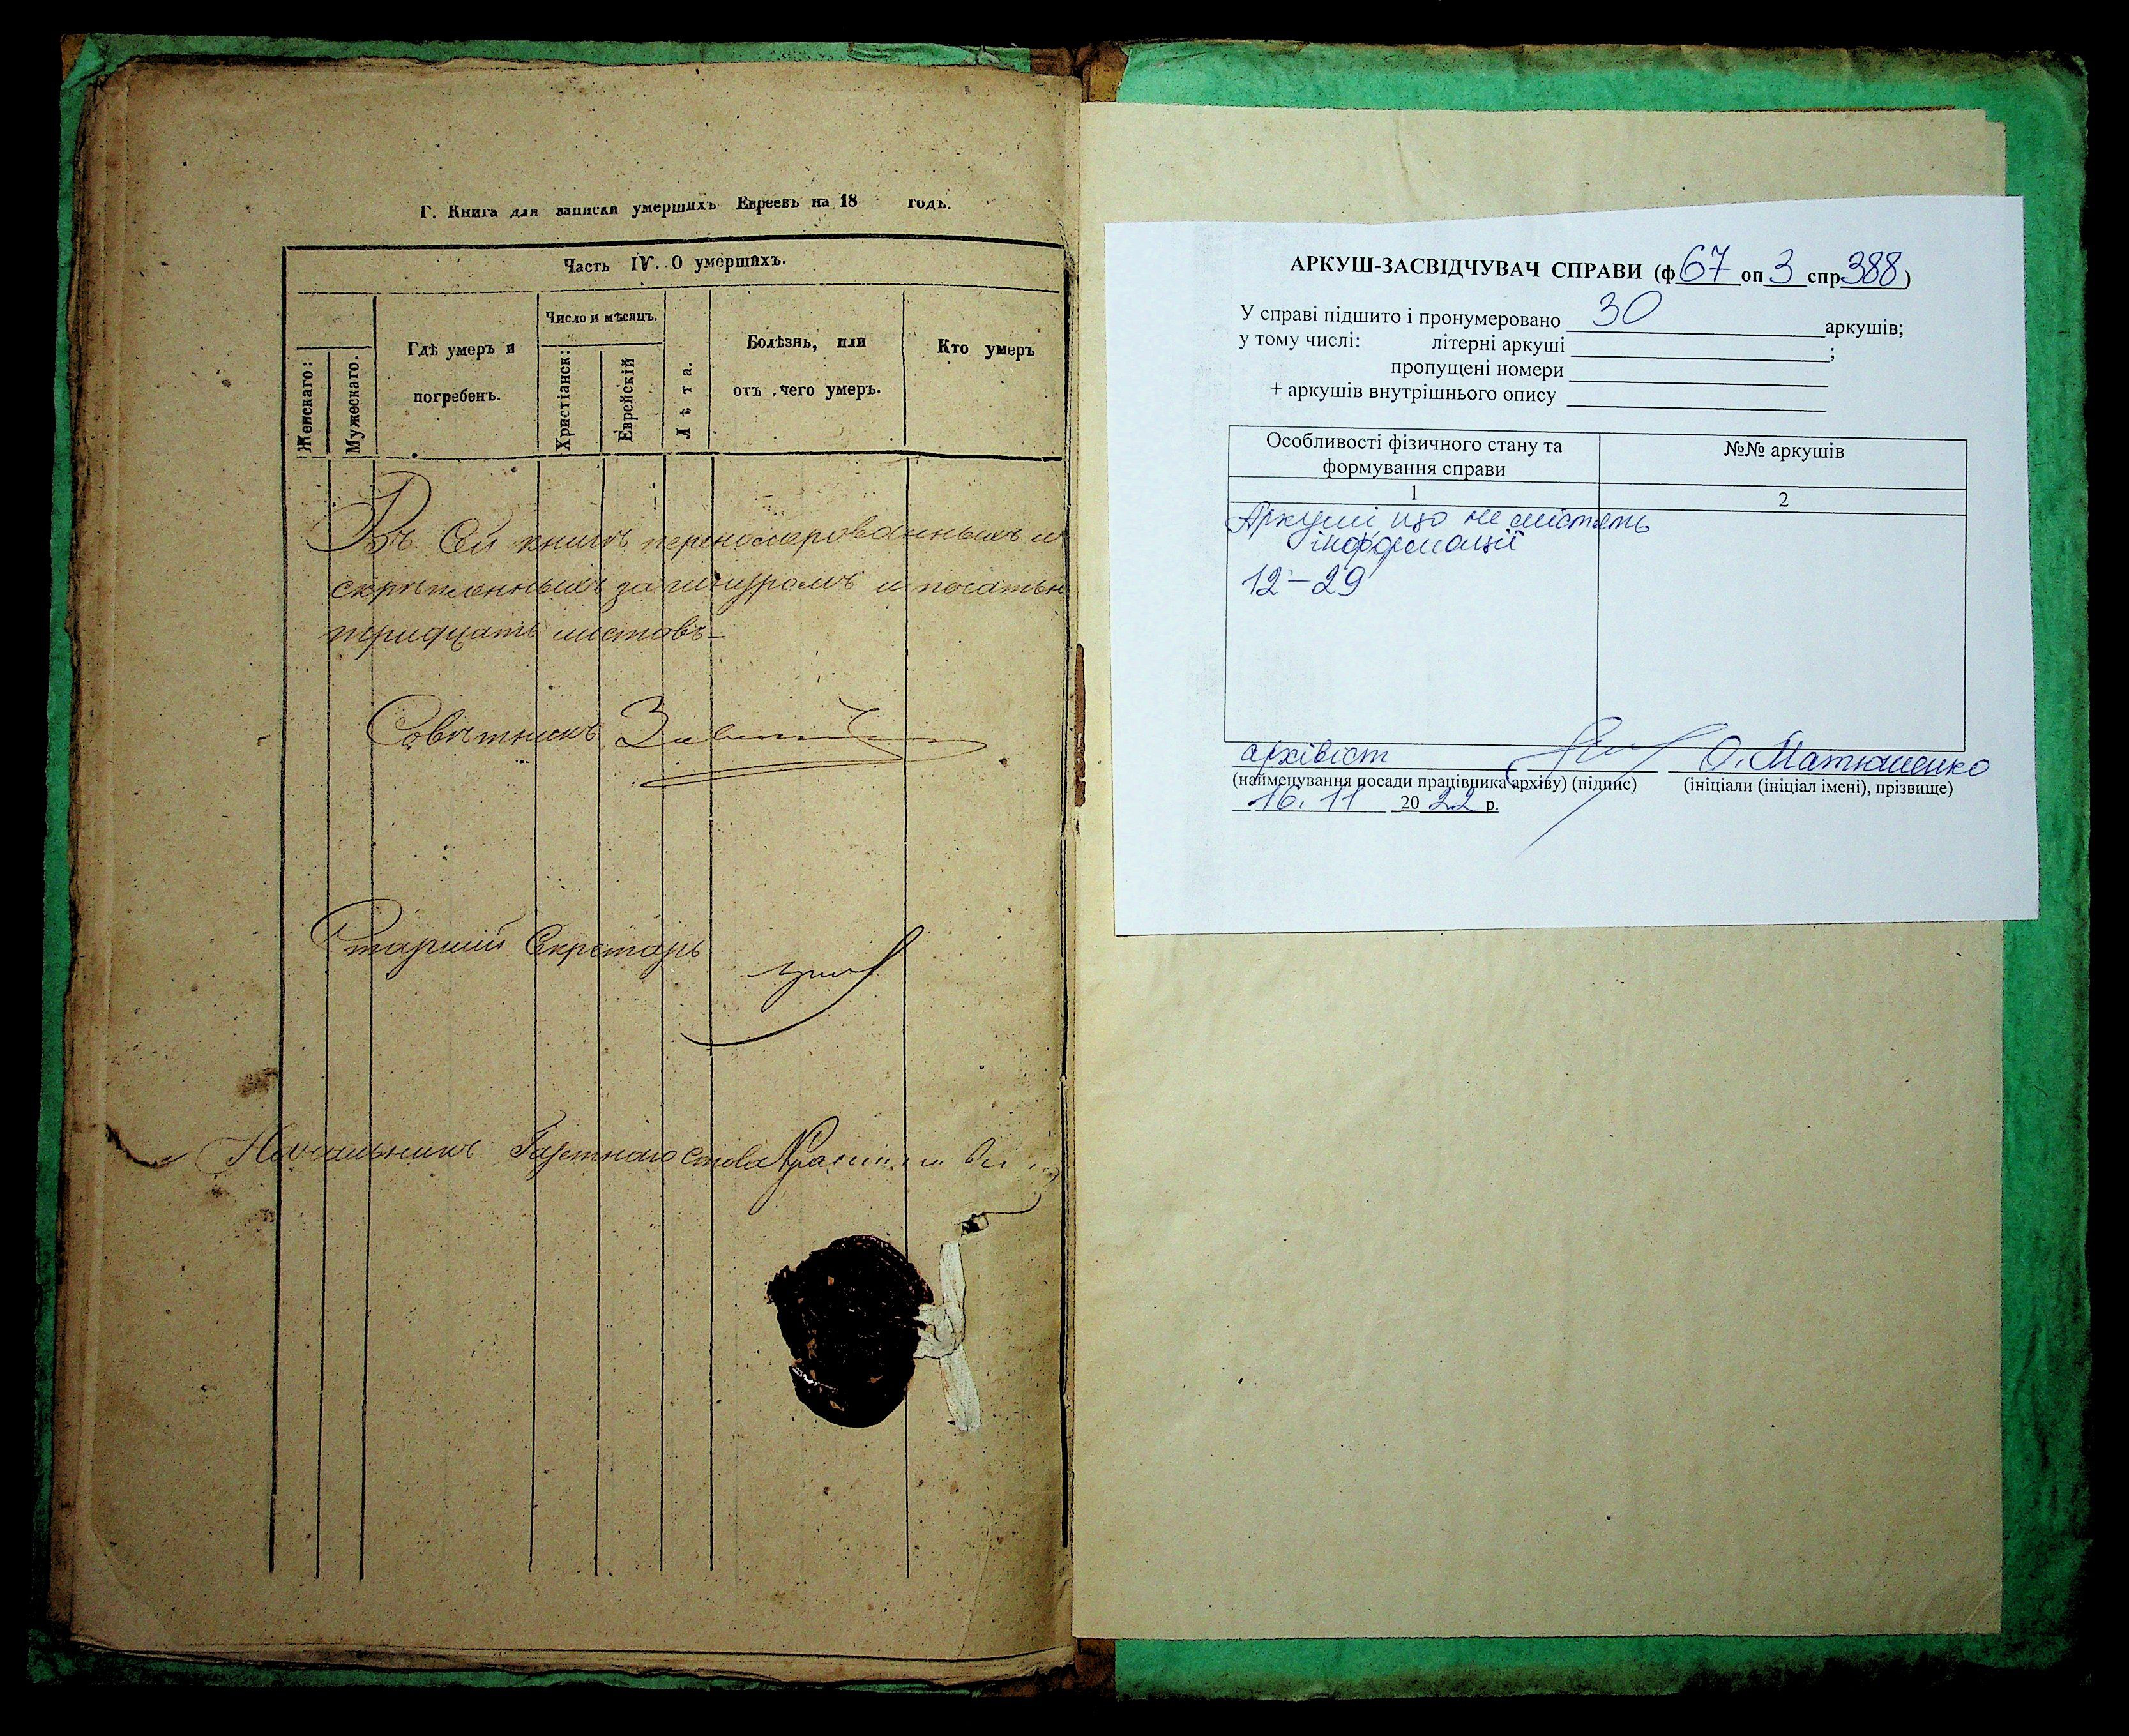 Г. Книга для записки умершихъ Евреевъ на 18 годъ.
Часть IV. О умершихъ.
Женскаго:
Мужескаго.
Гдѣ умеръ и
погребенъ.
Число и мѣсяцъ.
Христіанск:
Еврейскій
Лѣта.
Болѣзнь, или
отъ чего умеръ.
Кто умеръ
Въ Сей книгѣ перономерованныхъ и
скрѣпленныхъ за шнуромъ и
тридцать листовъ
Совѣтникъ
Старший Секретарь
Начальникъ Газетнаго Стола
АРКУШ-ЗАСВІДЧУВАЧ СПРАВИ (ф 67 оп 3 спр 388)
У справі підшито і пронумеровано 30 аркушів;
у тому числі: літерні аркуші ;
пропущені номери
+ аркушів внутрішнього опису
Особливості фізичного стану та
формування справи
№№ аркушів
1
2
Аркуші що не містять
інформації
12-29
архівіст О. Матюшенко
(найменування посади працівника архіву) (підпис) (ініціали (ініціал імені), прізвище)
16. 11 2022 р.